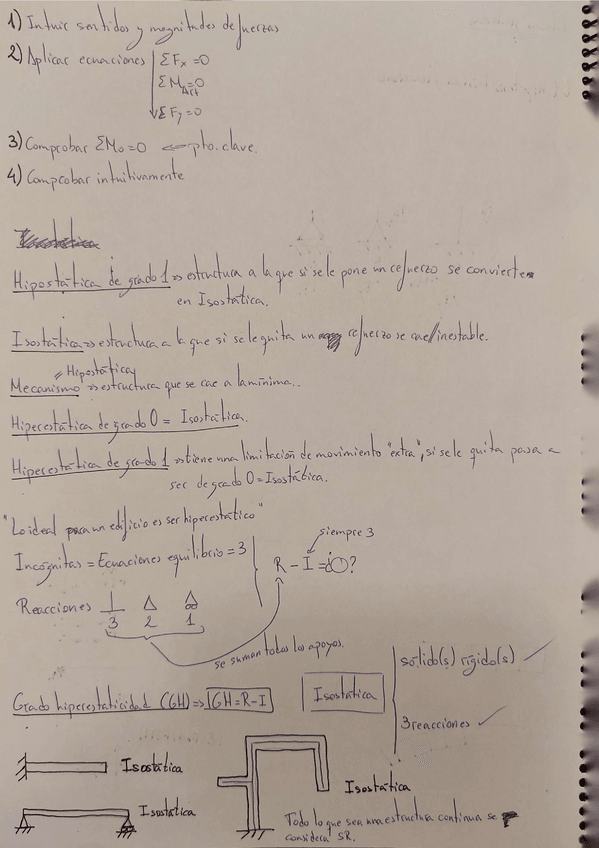 1) Intuir sentidos y magnitudes de fuerzas
2) Aplicar ecuaciones ΣFx = 0
ΣM_Act = 0
ΣFy = 0
3) Comprobar ΣMo = 0 ⇐ pto. clave.
4) Comprobar intuitivamente
Hipostática de grado 1 => estructura a la que si se le pone un refuerzo se convierte
en Isostática.
Isostática => estructura a la que si se le quita un refuerzo se cae/inestable.
= Hipostática
Mecanismo => estructura que se cae a la mínima..
Hiperestática de grado 0 = Isostática.
Hiperestática de grado 1 => tiene una limitación de movimiento "extra", si se le quita pasa a
ser de grado 0 = Isostática.
"Lo ideal para un edificio es ser hiperestático"
siempre 3
Incógnitas = Ecuaciones equilibrio = 3
R - I = ¿0?
Reacciones
3 2 1
se suman todos los apoyos.
sólido(s) rígido(s) ✓
Grado hiperestaticidad (GH) => GH = R - I
Isostática
3 reacciones ✓
Isostática
Isostática
Isostática
Todo lo que sea una estructura continua se
considera SR.